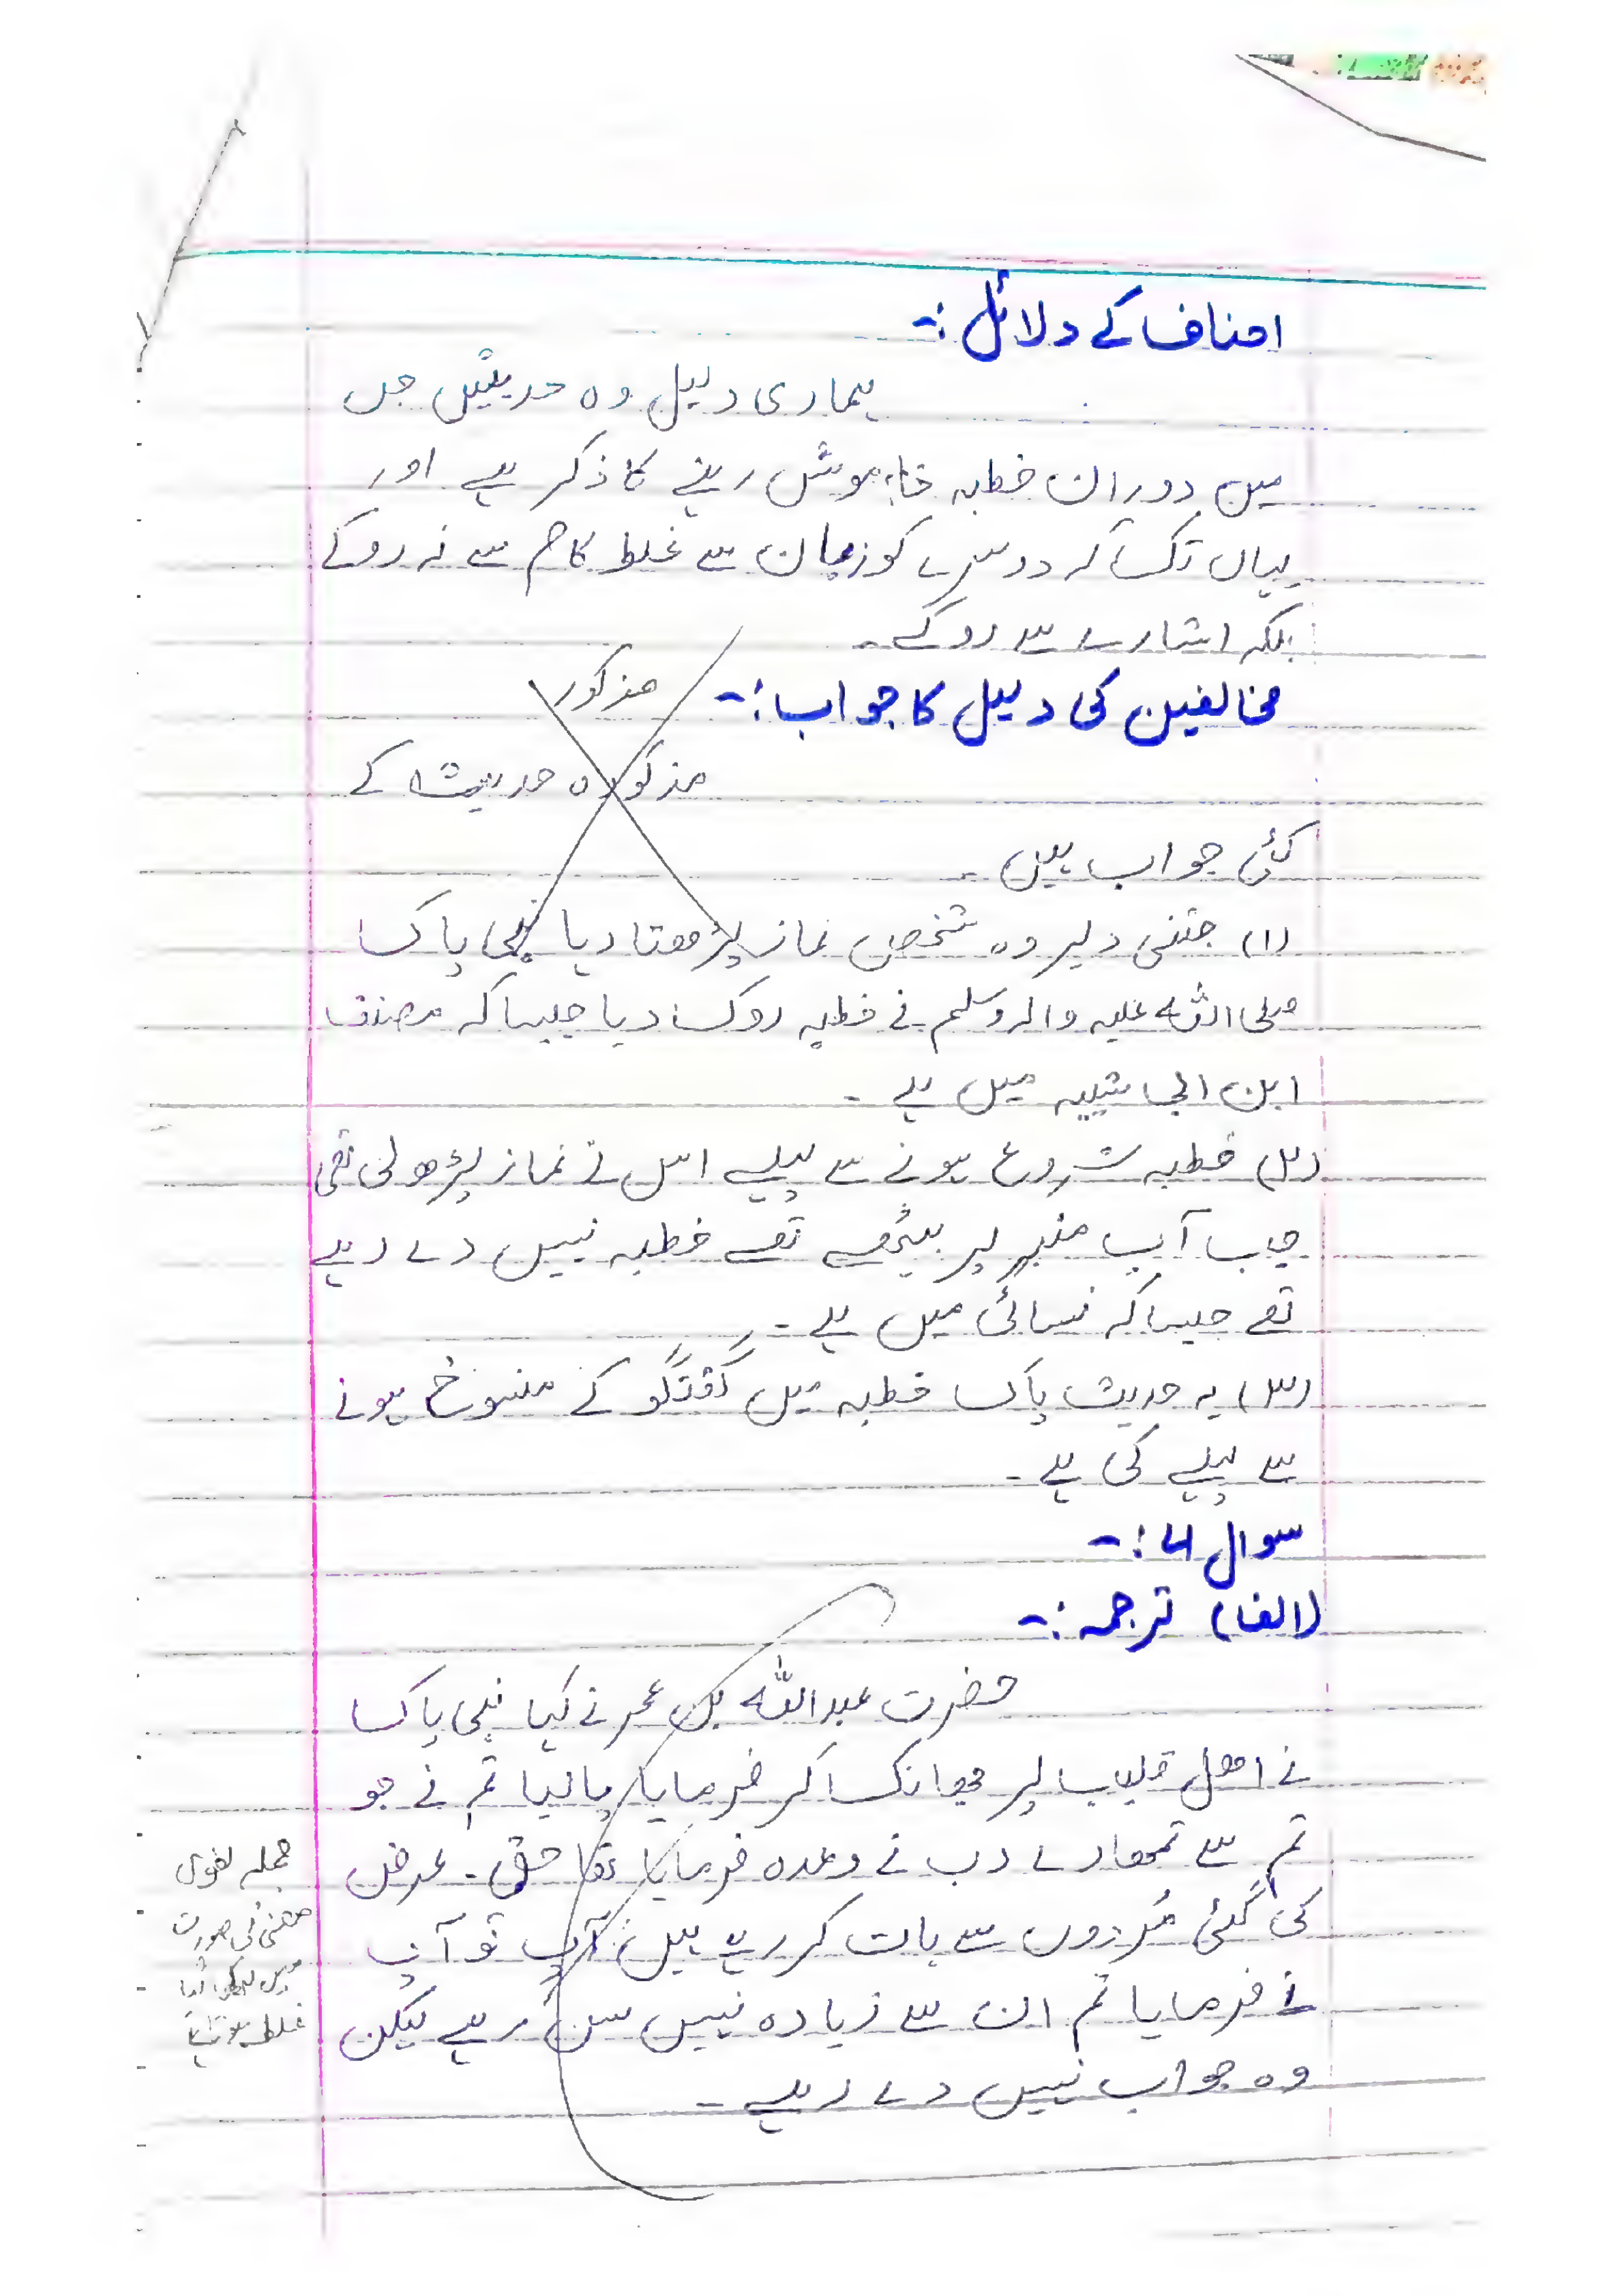 احناف کے دلائل :-
ہماری دلیل وہ حدیثیں جن
میں دوران خطبہ خاموش رہنے کا ذکر ہے اور
یہاں تک کہ دوسرے کو زبان سے غلط کام سے نہ روکے
بلکہ اشارے سے روکے۔
مخالفین کی دلیل کا جواب :- مذکور
مذکورہ حدیث کے
کئی جواب ہیں۔
(۱) جتنی دیر وہ شخص نماز پڑھتا رہا نبی پاک
صلی اللہ علیہ والہ وسلم نے خطبہ روک دیا جیسا کہ مصنف
ابن ابی شیبہ میں ہے۔
(۲) خطبہ شروع ہونے سے پہلے اس نے نماز پڑھ لی تھی
جب آپ منبر پر بیٹھے تھے خطبہ نہیں دے رہے
تھے جیسا کہ نسائی میں ہے۔
(۳) یہ حدیث پاک خطبہ میں گفتگو کے منسوخ ہونے
سے پہلے کی ہے۔
سوال 4 :-
(الف) ترجمہ :-
حضرت عبداللہ بن عمر نے کہا نبی پاک
نے اھل قلیب پر جھانک کر فرمایا پا لیا تم نے جو
تم سے تمھارے رب نے وعدہ فرمایا تھا حق۔ عرض
کی گئی مُردوں سے بات کر رہے ہیں آپ تو آپ
نے فرمایا تم ان سے زیادہ نہیں سن رہے لیکن
وہ جواب نہیں دے رہے۔
جملہ لغوی
معنی کی صورت
میں
غلط